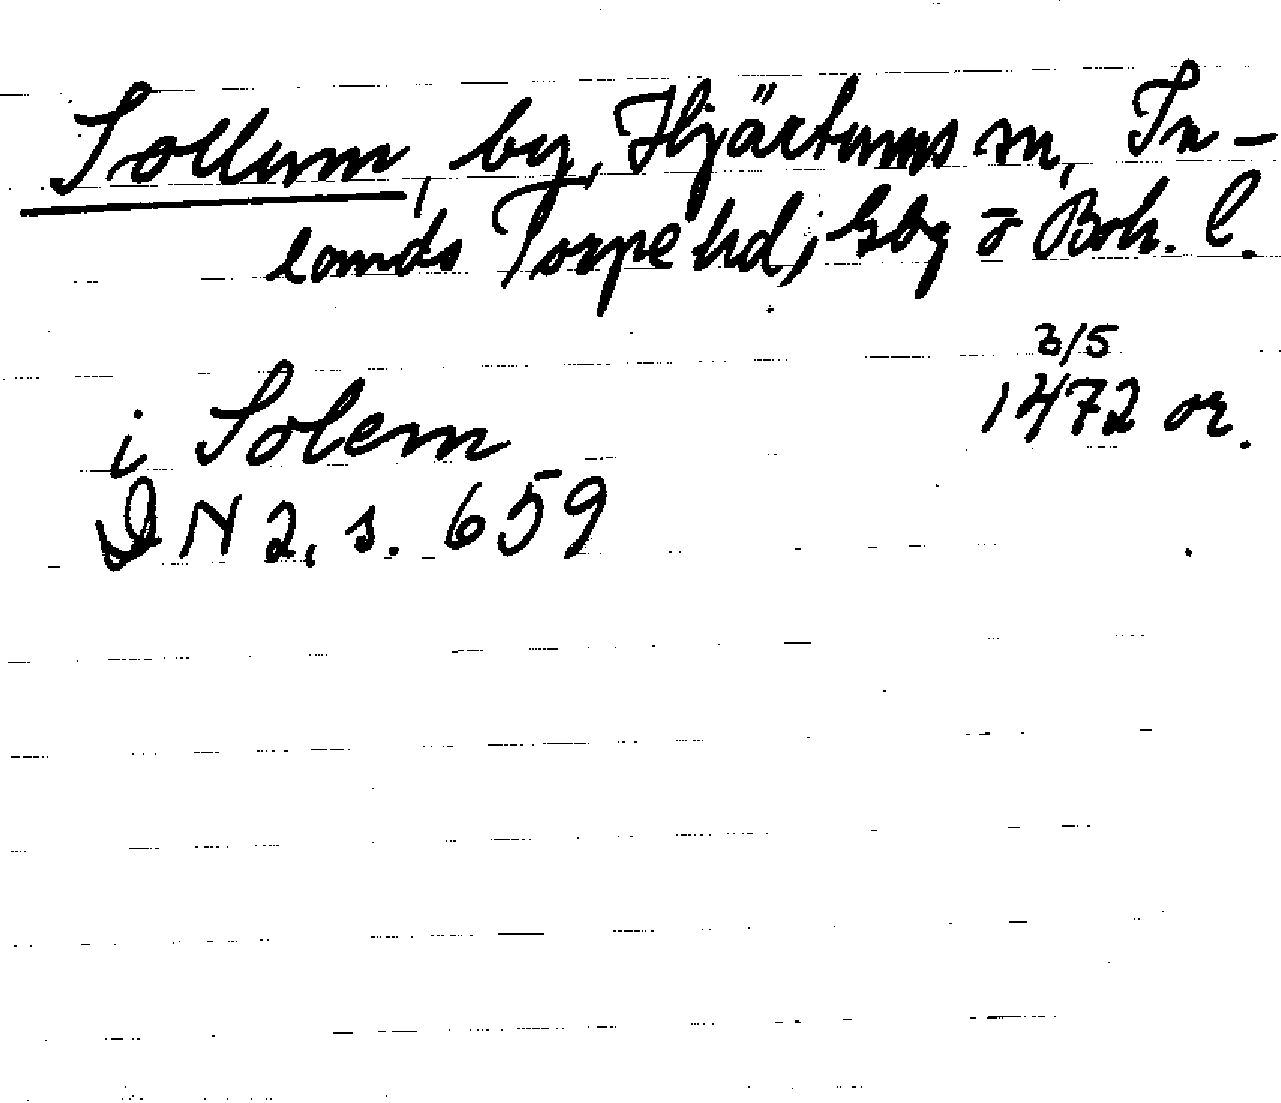 Sollum, by, Hjärtums sn, In-
lands Torpe hd; Gbg o Boh. l.
3/5
i Solem 1472 or.
DN 2, s. 659